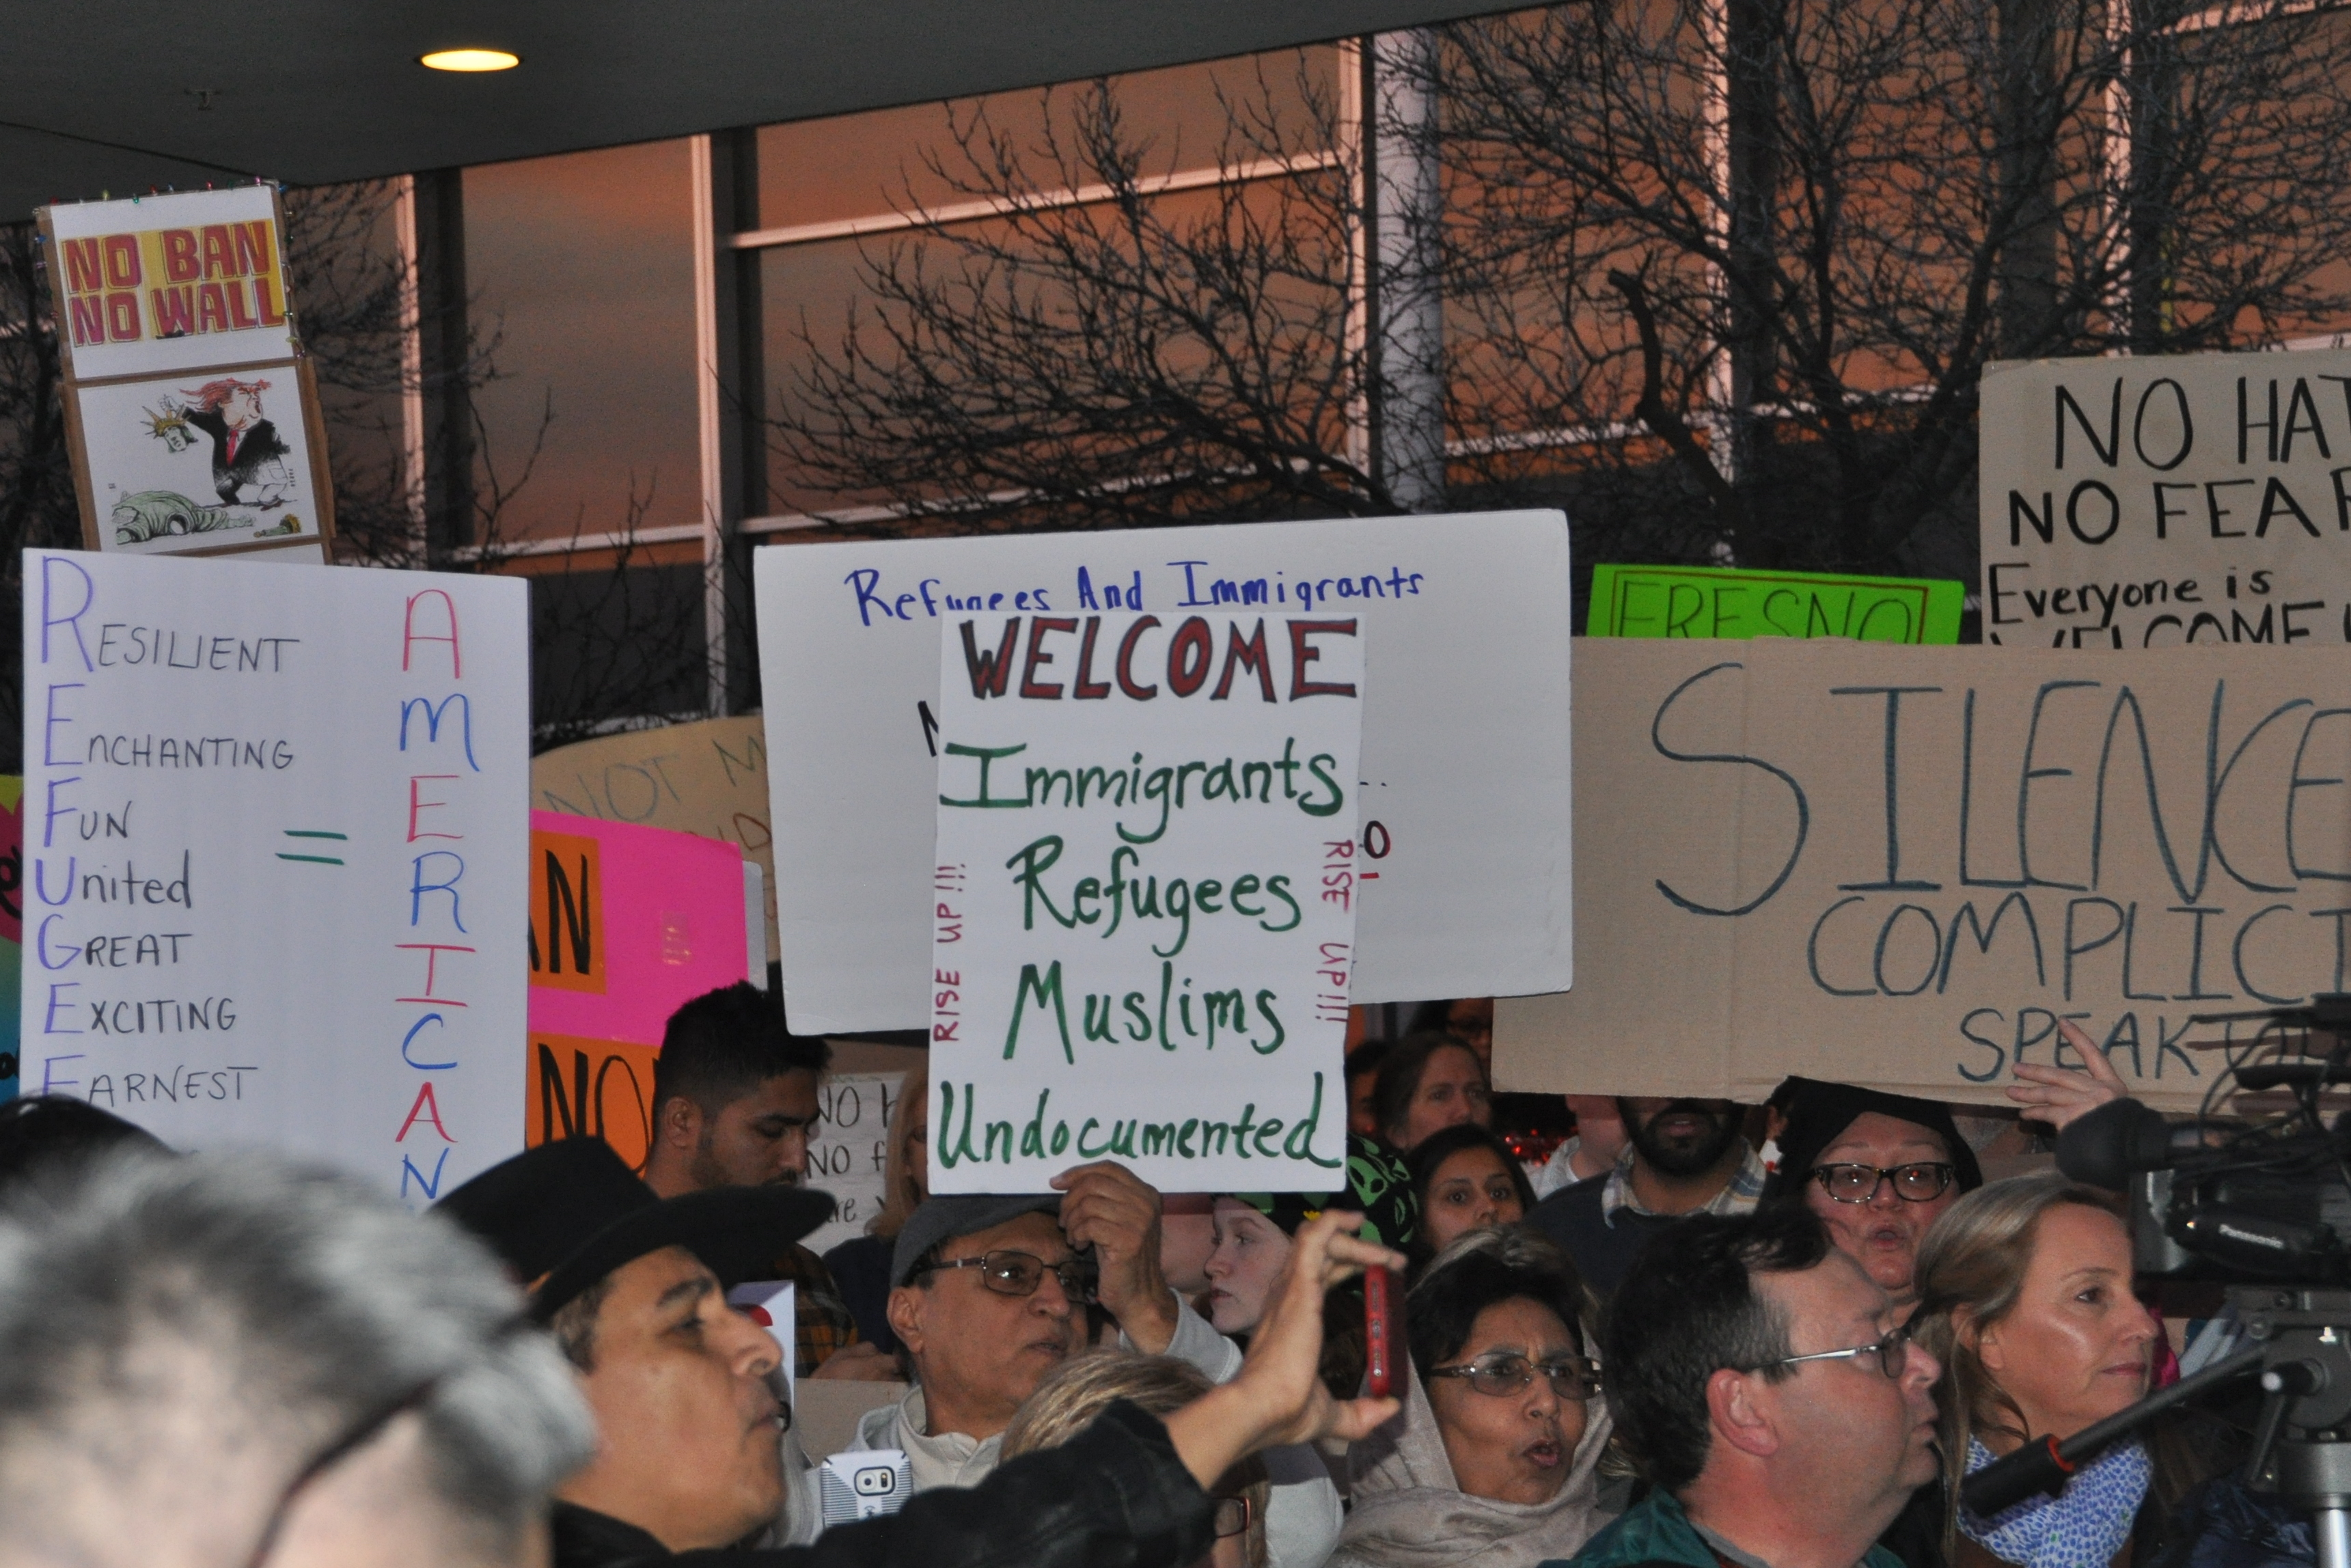 NO BAN
NO WALL
RESILIENT
ENCHANTING
FUN
UNITED
GREAT
EXCITING
EARNEST
=
AMERICAN
NOT
NO
Refugees And Immigrants
WELCOME
Immigrants
Refugees
Muslims
Undocumented
RISE UP!!!
RISE UP!!!
FRESNO
NO
NO
Everyone is
WELCOME
SILENCE
SPEAK
NO
NO
Panasonic